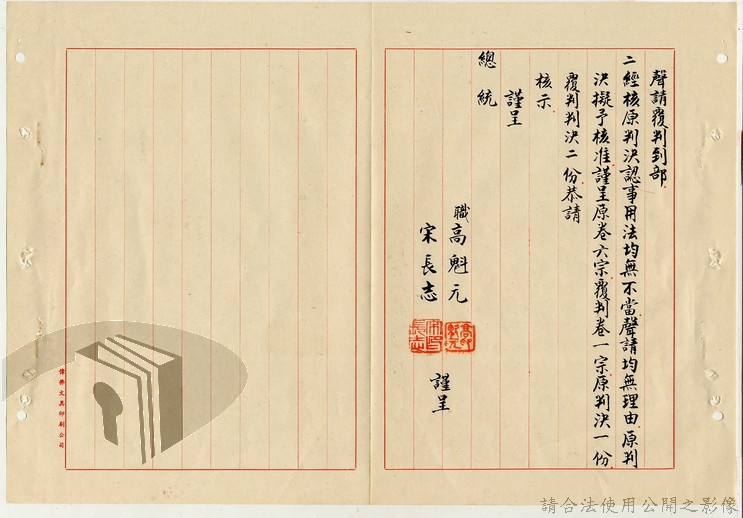 聲請覆判到部
二經核原判決認事用法均無不當聲請均無理由原判
決擬予核准謹呈原卷六宗覆判卷一宗原判決一份
覆判判決二份恭請
核示
謹呈
總統
職高魁元
宋長志
謹呈
偉勝文具印刷公司
請合法使用公開之影像